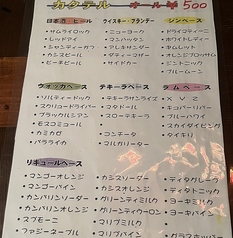 カクテル オール ¥500
日本酒・ビール
・サムライロック
・レッドアイ
・シャンディーガフ
・カシスビール
・ピーチビール
ウイスキー・ブランデー
・ニューヨーク
・マンハッタン
・アレキサンダー
・サイドカー
ジンベース
・ドライマティーニ
・ホワイトレディー
・オレンジブロッサム
・ジントニック
・ブルームーン
ウォッカベース
・ソルティードック
・スクリュードライバー
・ブラックルシアン
・モスコミュール
・カミカゼ
・バラライカ
テキーラベース
・テキーラサンライズ
・マタドール
・スローテキーラ
・コンチータ
・マルガリータ
ラムベース
・X Y Z
・キューバリバー
・ブルーハワイ
・スカイダイビング
・ダイキリ
リキュールベース
・マンゴーオレンジ
・マンゴーパイン
・カンパリンソーダー
・カンパリンオレンジ
・スプモーニ
・ファジーネーブル
・カシスソーダー
・カシスオレンジ
・グリーンティーミルク
・グリーンティウーロン
・マリブパイン
・マリブコーク
・ディタグレープ
・ディタトニック
・ヨーギミルク
・ヨーギパイン
・グラスホッパー